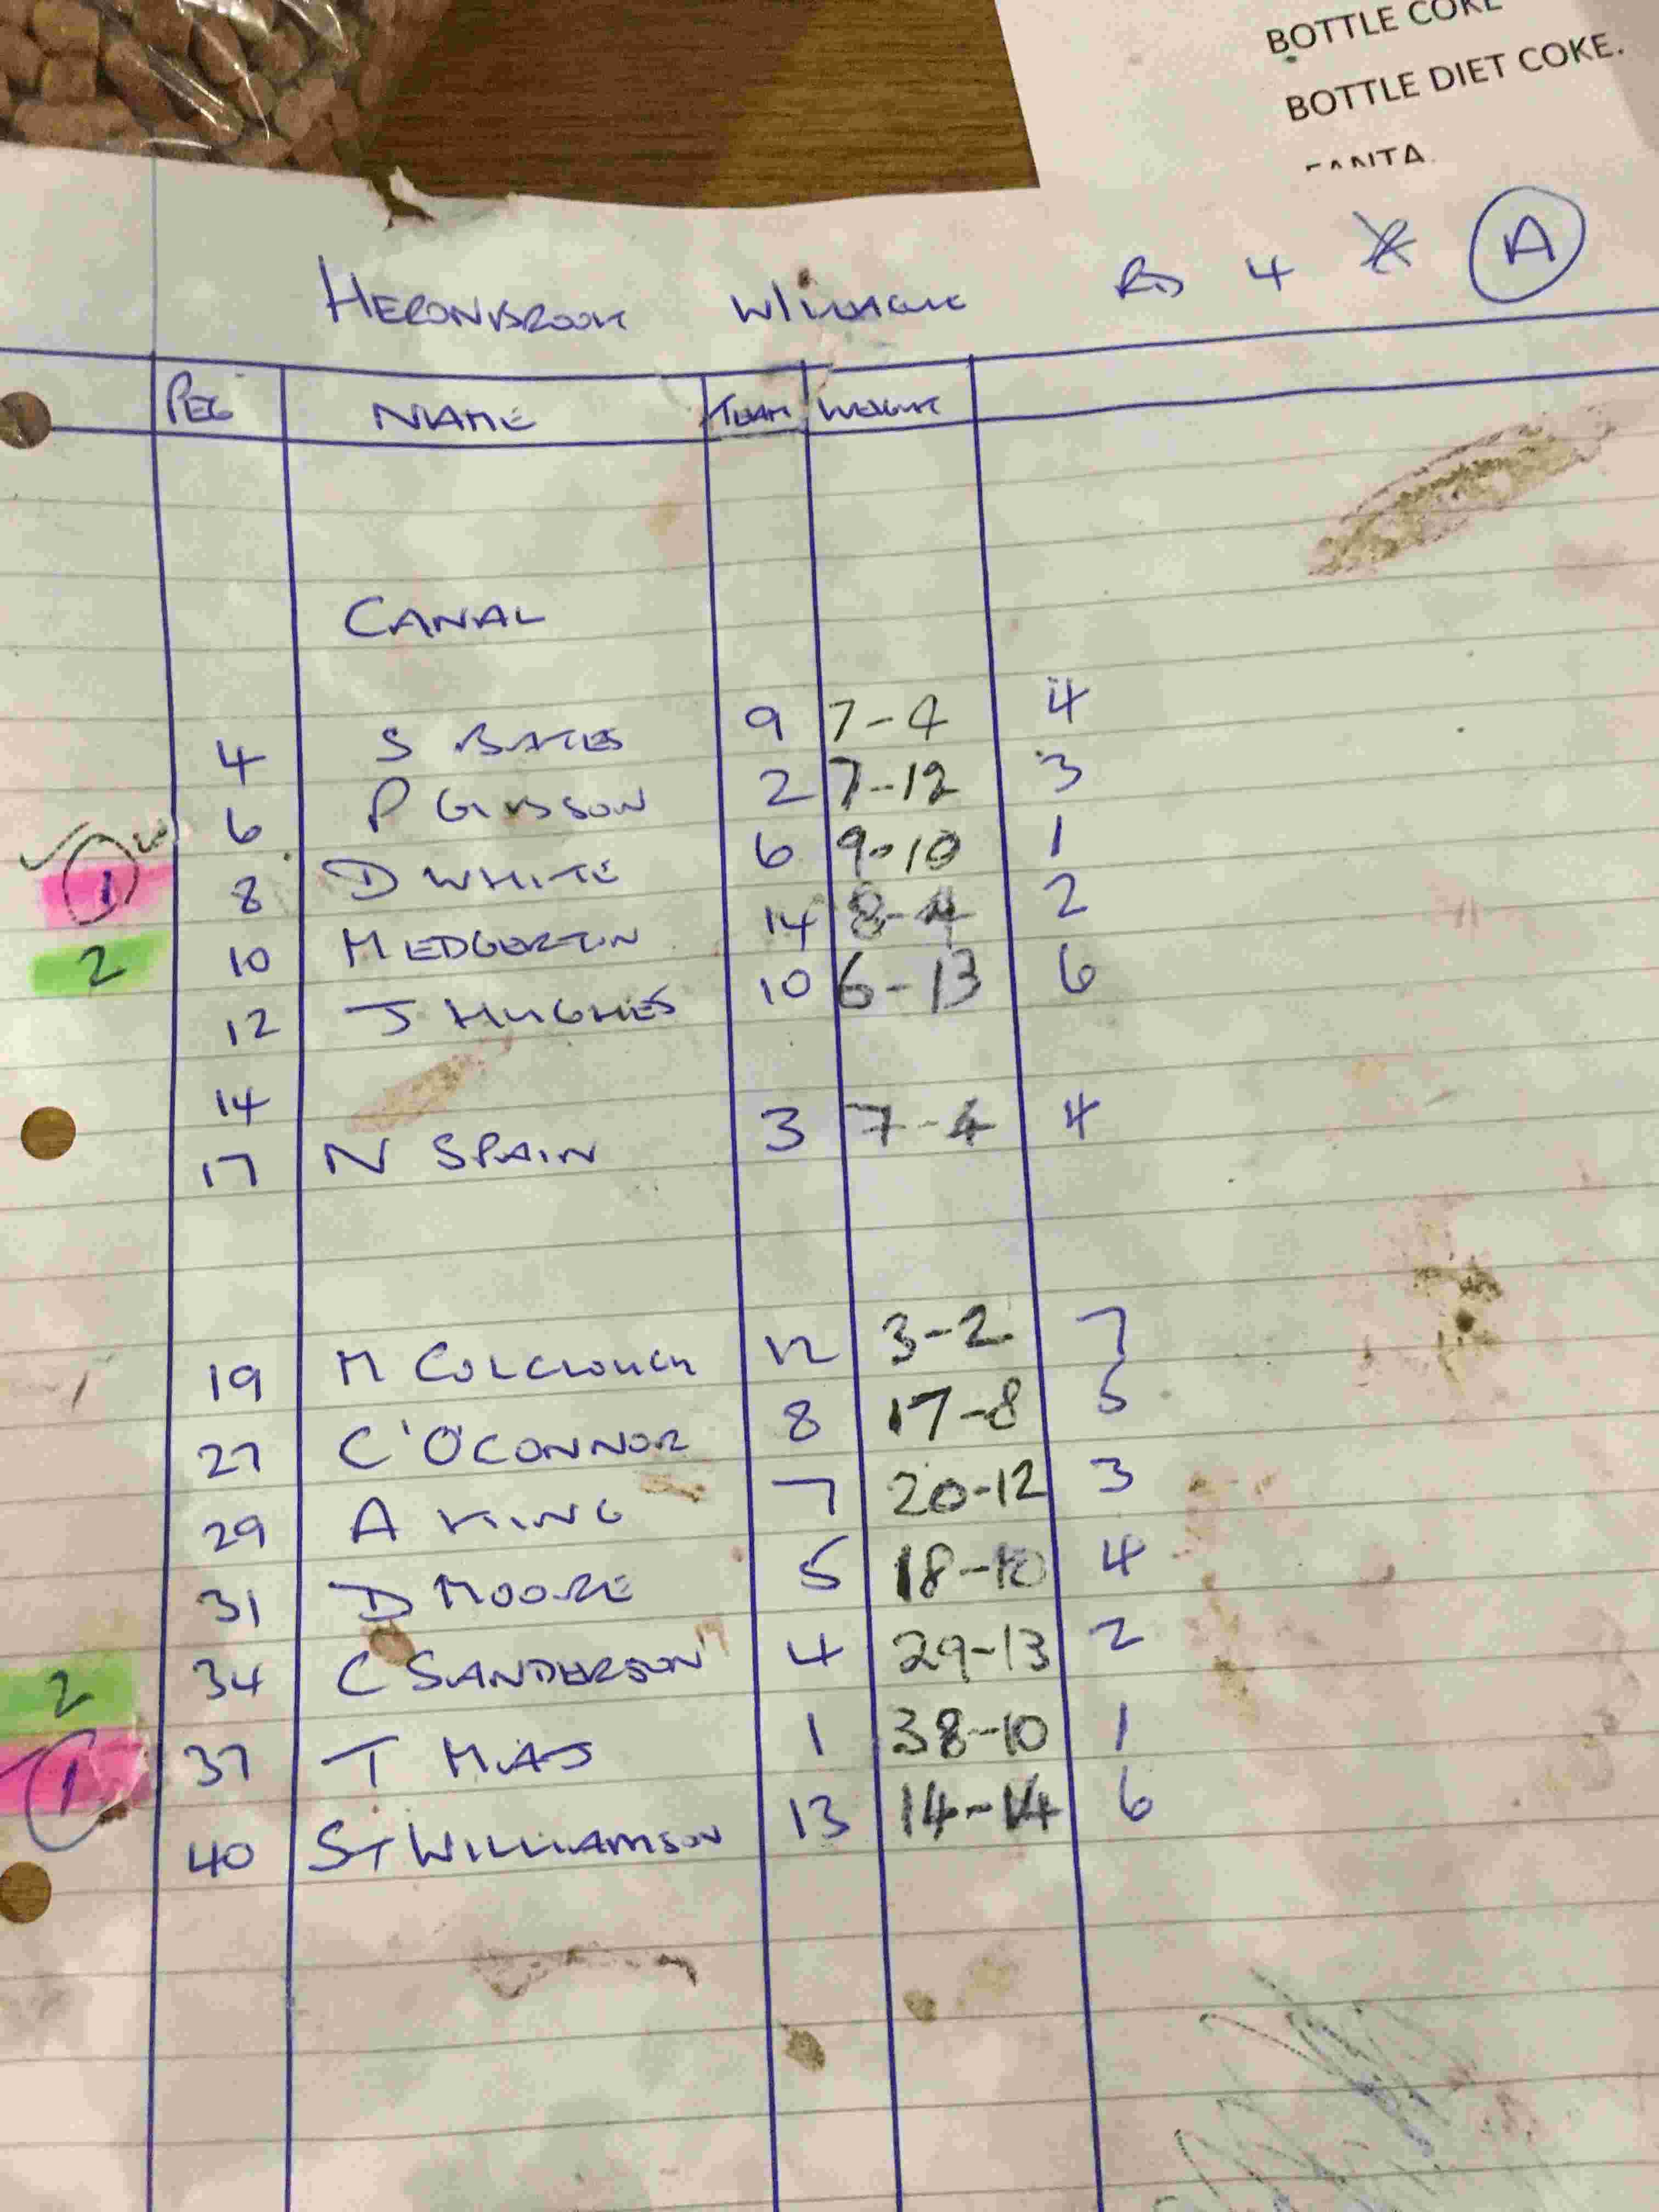 BOTTLE COKE
BOTTLE DIET COKE.
FANTA
HERONBROOK RD 4 A
PEG NAME TEAM WEIGHT
CANAL
4 S BATES 9 7-4 4
6 P GIBSON 2 7-12 3
1 8 D WHITE 6 9-10 1
2 10 M EDGERTON 14 8-4 2
12 J HUGHES 10 6-13 6
14
17 N SPAIN 3 7-4 4
19 M COLCLOUGH 12 3-2 7
27 C O'CONNOR 8 17-8 5
29 A KING 7 20-12 3
31 D MOORE 5 18-10 4
2 34 C SANDERSON 4 29-13 2
1 37 T 1 38-10 1
40 ST WILLIAMSON 13 14-14 6